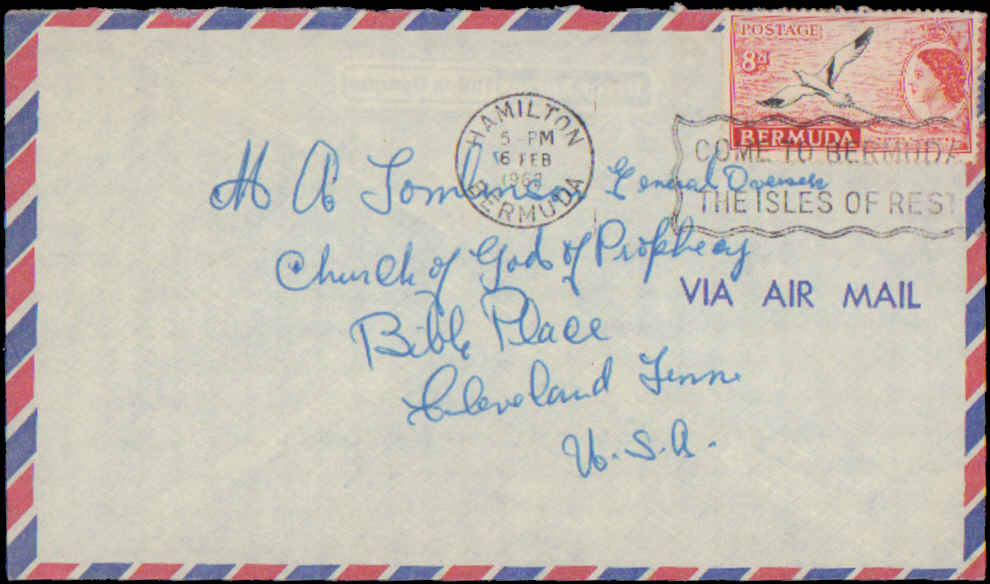 POSTAGE
8d
BERMUDA
HAMILTON
5-PM
6 FEB
BERMUDA
COME TO BERMUDA
THE ISLES OF REST
M A Tomlinson, General Overseer
Church of God of Prophecy
Bible Place
Cleveland Tenn
U.S.A.
VIA AIR MAIL